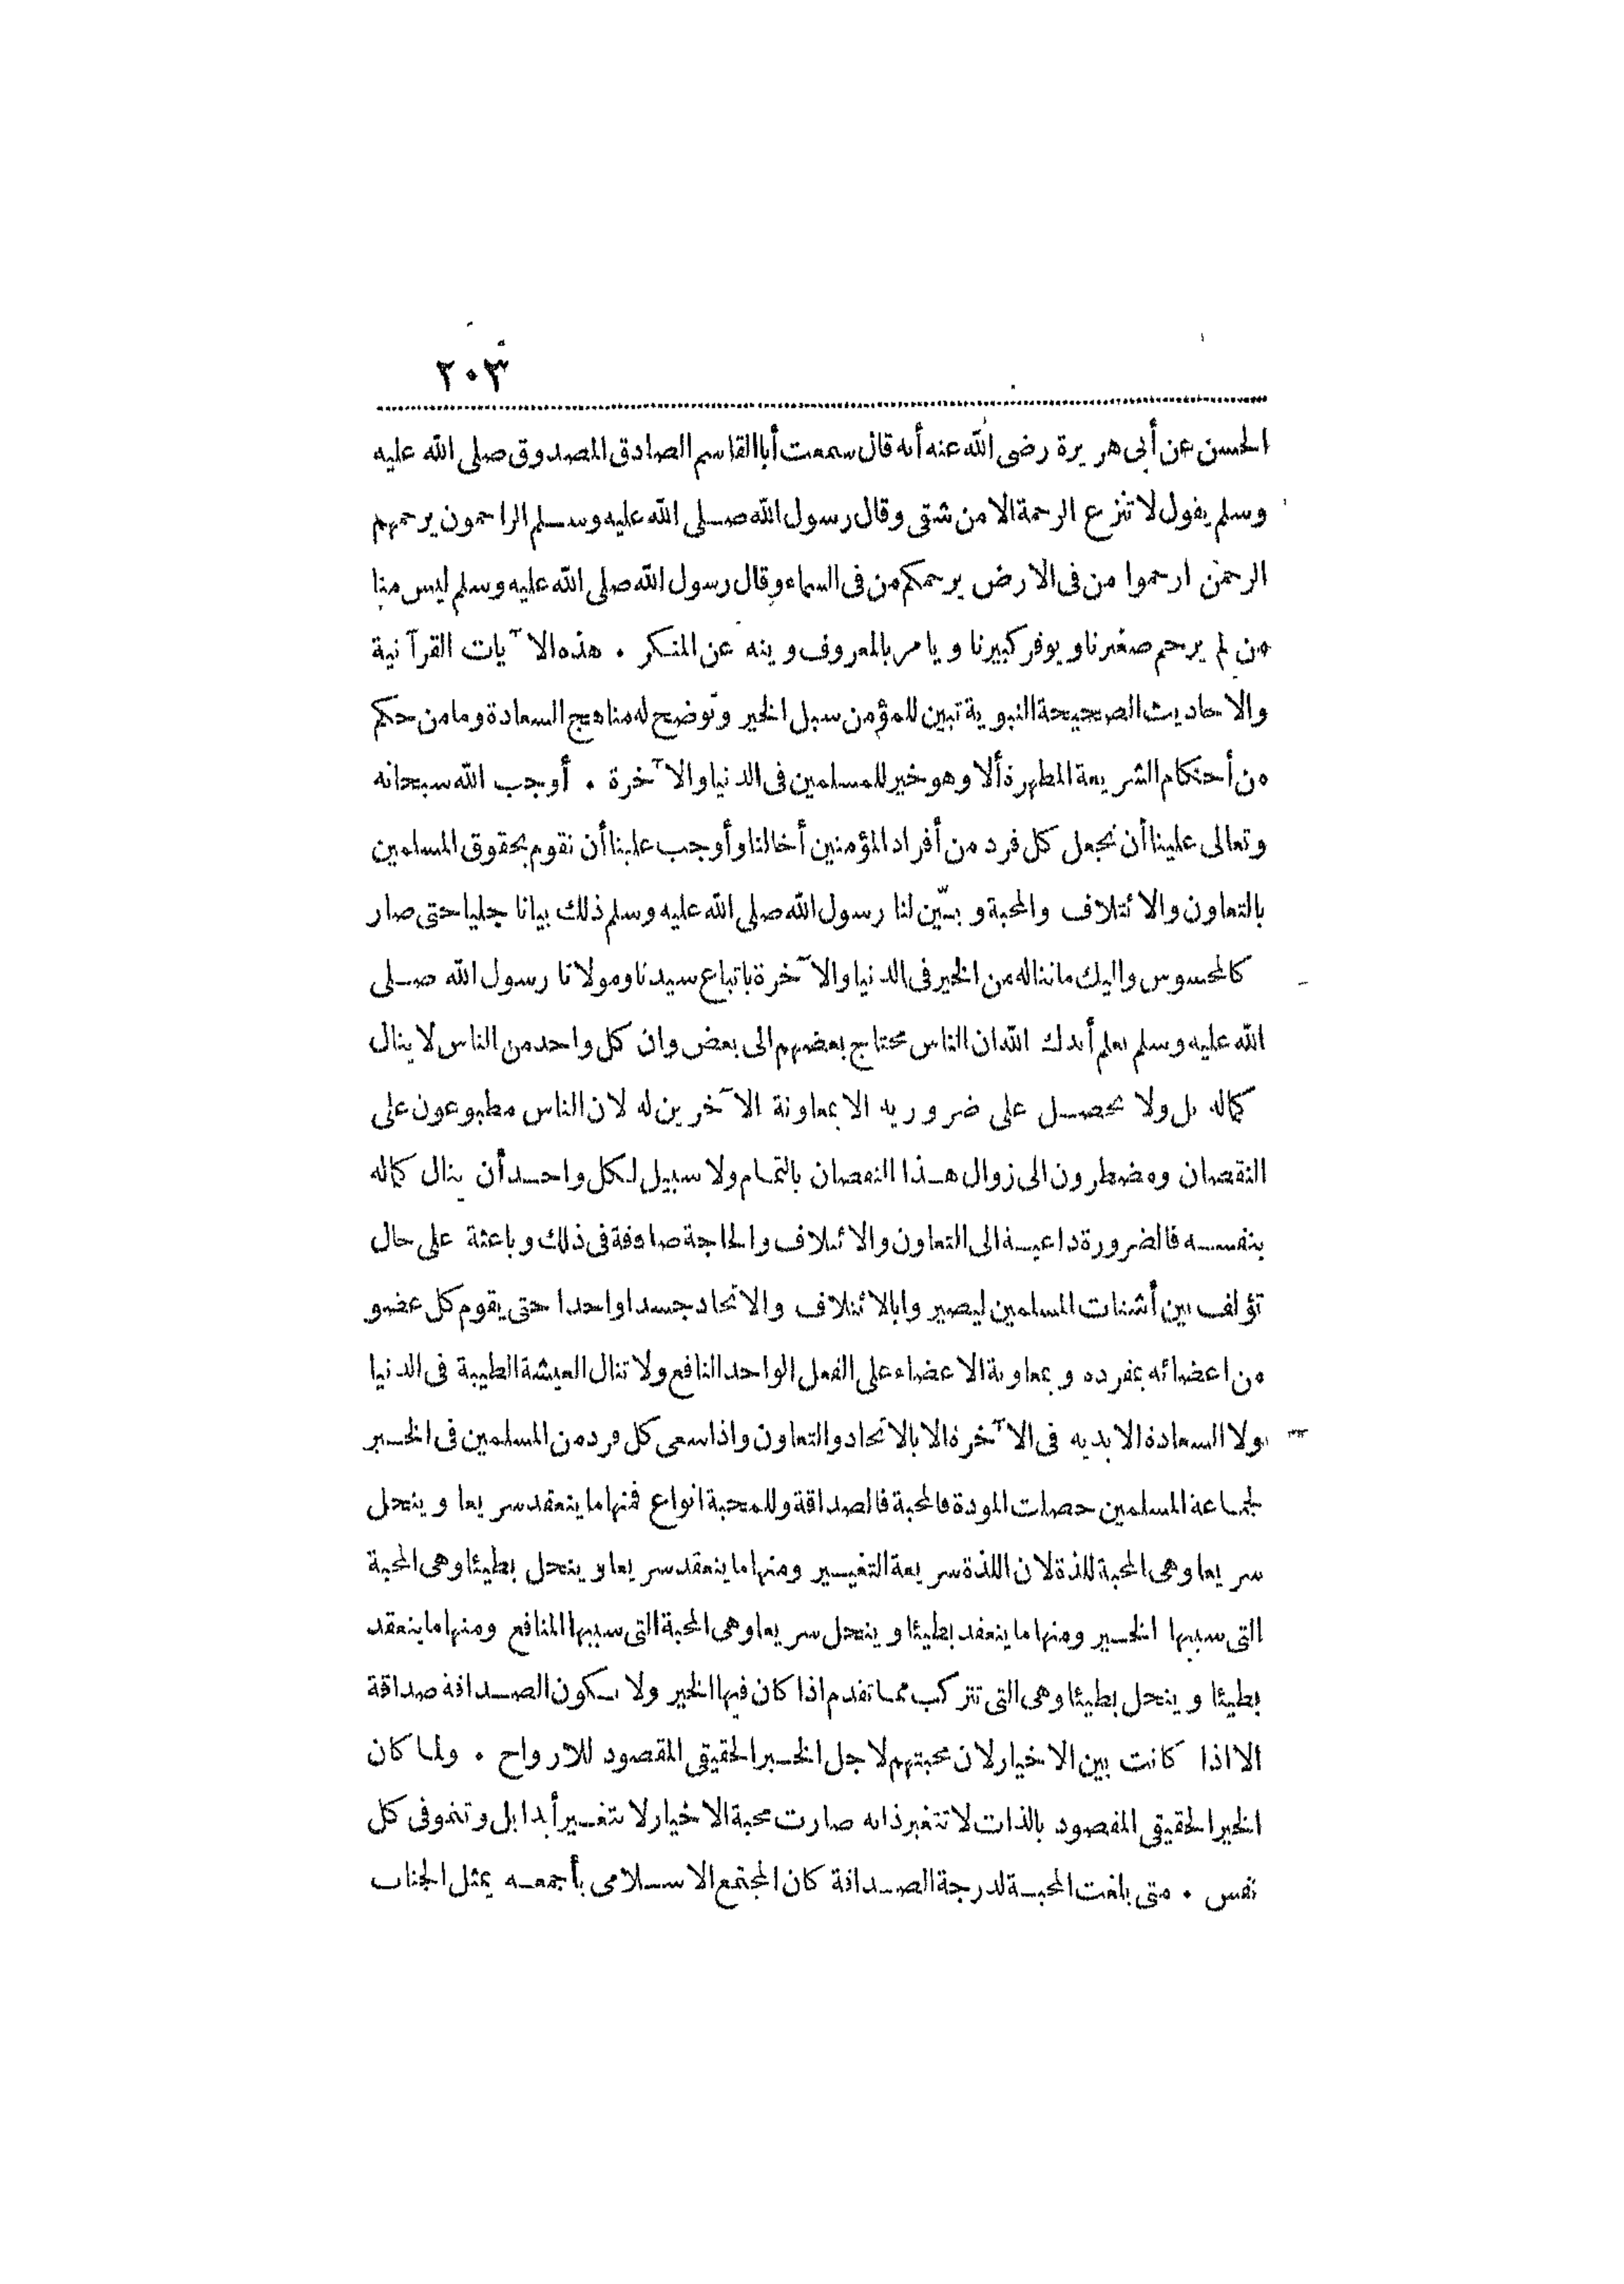 ٢٠٣
الحسن عن أبى هريرة رضى الله عنه أنه قال سمعت أبا القاسم الصادق المصدوق صلى الله عليه
وسلم يقول لا تنزع الرحمة الا من شقى وقال رسول الله صلى الله عليه وسلم الراحمون يرحمهم
الرحمن ارحموا من فى الارض يرحمكم من فى السماء وقال رسول الله صلى الله عليه وسلم ليس منا
من لم يرحم صغيرنا ويوقر كبيرنا ويامر بالمعروف وينه عن المنكر . هذه الآيات القرآنية
والاحاديث الصحيحة النبوية تبين للمؤمن سبل الخير وتوضح له مناهج السعادة وما من حكم
من أحكام الشريعة المطهرة ألا وهو خير للمسلمين فى الدنيا والآخرة . أوجب الله سبحانه
وتعالى علينا أن نجعل كل فرد من أفراد المؤمنين أخا لنا وأوجب علينا أن نقوم بحقوق المسلمين
بالتعاون والائتلاف والمحبة وبيّن لنا رسول الله صلى الله عليه وسلم ذلك بيانا جليا حتى صار
كالمحسوس واليك ما نناله من الخير فى الدنيا والآخرة باتباع سيدنا ومولانا رسول الله صلى
الله عليه وسلم نعلم أيدك الله ان الناس محتاج بعضهم الى بعض وان كل واحد من الناس لا ينال
كماله بل ولا يحصل على ضروريه الا بمعاونة الآخرين له لان الناس مطبوعون على
النقصان ومضطرون الى زوال هذا النقصان بالتمام ولا سبيل لكل واحد أن ينال كماله
بنفسه فالضرورة داعية الى التعاون والائتلاف والحاجة صادقة فى ذلك وباعثة على حال
تؤلف بين أشتات المسلمين ليصيروا بالائتلاف والاتحاد جسدا واحدا حتى يقوم كل عضو
من اعضائه بمفرده وبمعاونة الاعضاء على الفعل الواحد النافع ولا تنال العيشة الطيبة فى الدنيا
ولا السعادة الابديه فى الآخرة الا بالاتحاد والتعاون واذا سعى كل فرد من المسلمين فى الخير
لجماعة المسلمين حصلت المودة فالمحبة فالصداقة وللمحبة انواع فمنها ما ينعقد سريعا وينحل
سريعا وهى المحبة للذة لان اللذة سريعة التغيير ومنها ما ينعقد سريعا وينحل بطيئا وهى المحبة
التى سببها الخير ومنها ما ينعقد بطيئا وينحل سريعا وهى المحبة التى سببها المنافع ومنها ما ينعقد
بطيئا وينحل بطيئا وهى التى تتركب مما تقدم اذا كان فيها الخير ولا تكون الصداقة صداقة
الا اذا كانت بين الاخيار لان محبتهم لاجل الخير الحقيقى المقصود للارواح . ولما كان
الخير الحقيقى المقصود بالذات لا تتغير ذاته صارت محبة الاخيار لا تتغير أبدا بل وتنمو فى كل
نفس . متى بلغت المحبة لدرجة الصداقة كان المجتمع الاسلامى بأجمعه يمثل الجناب